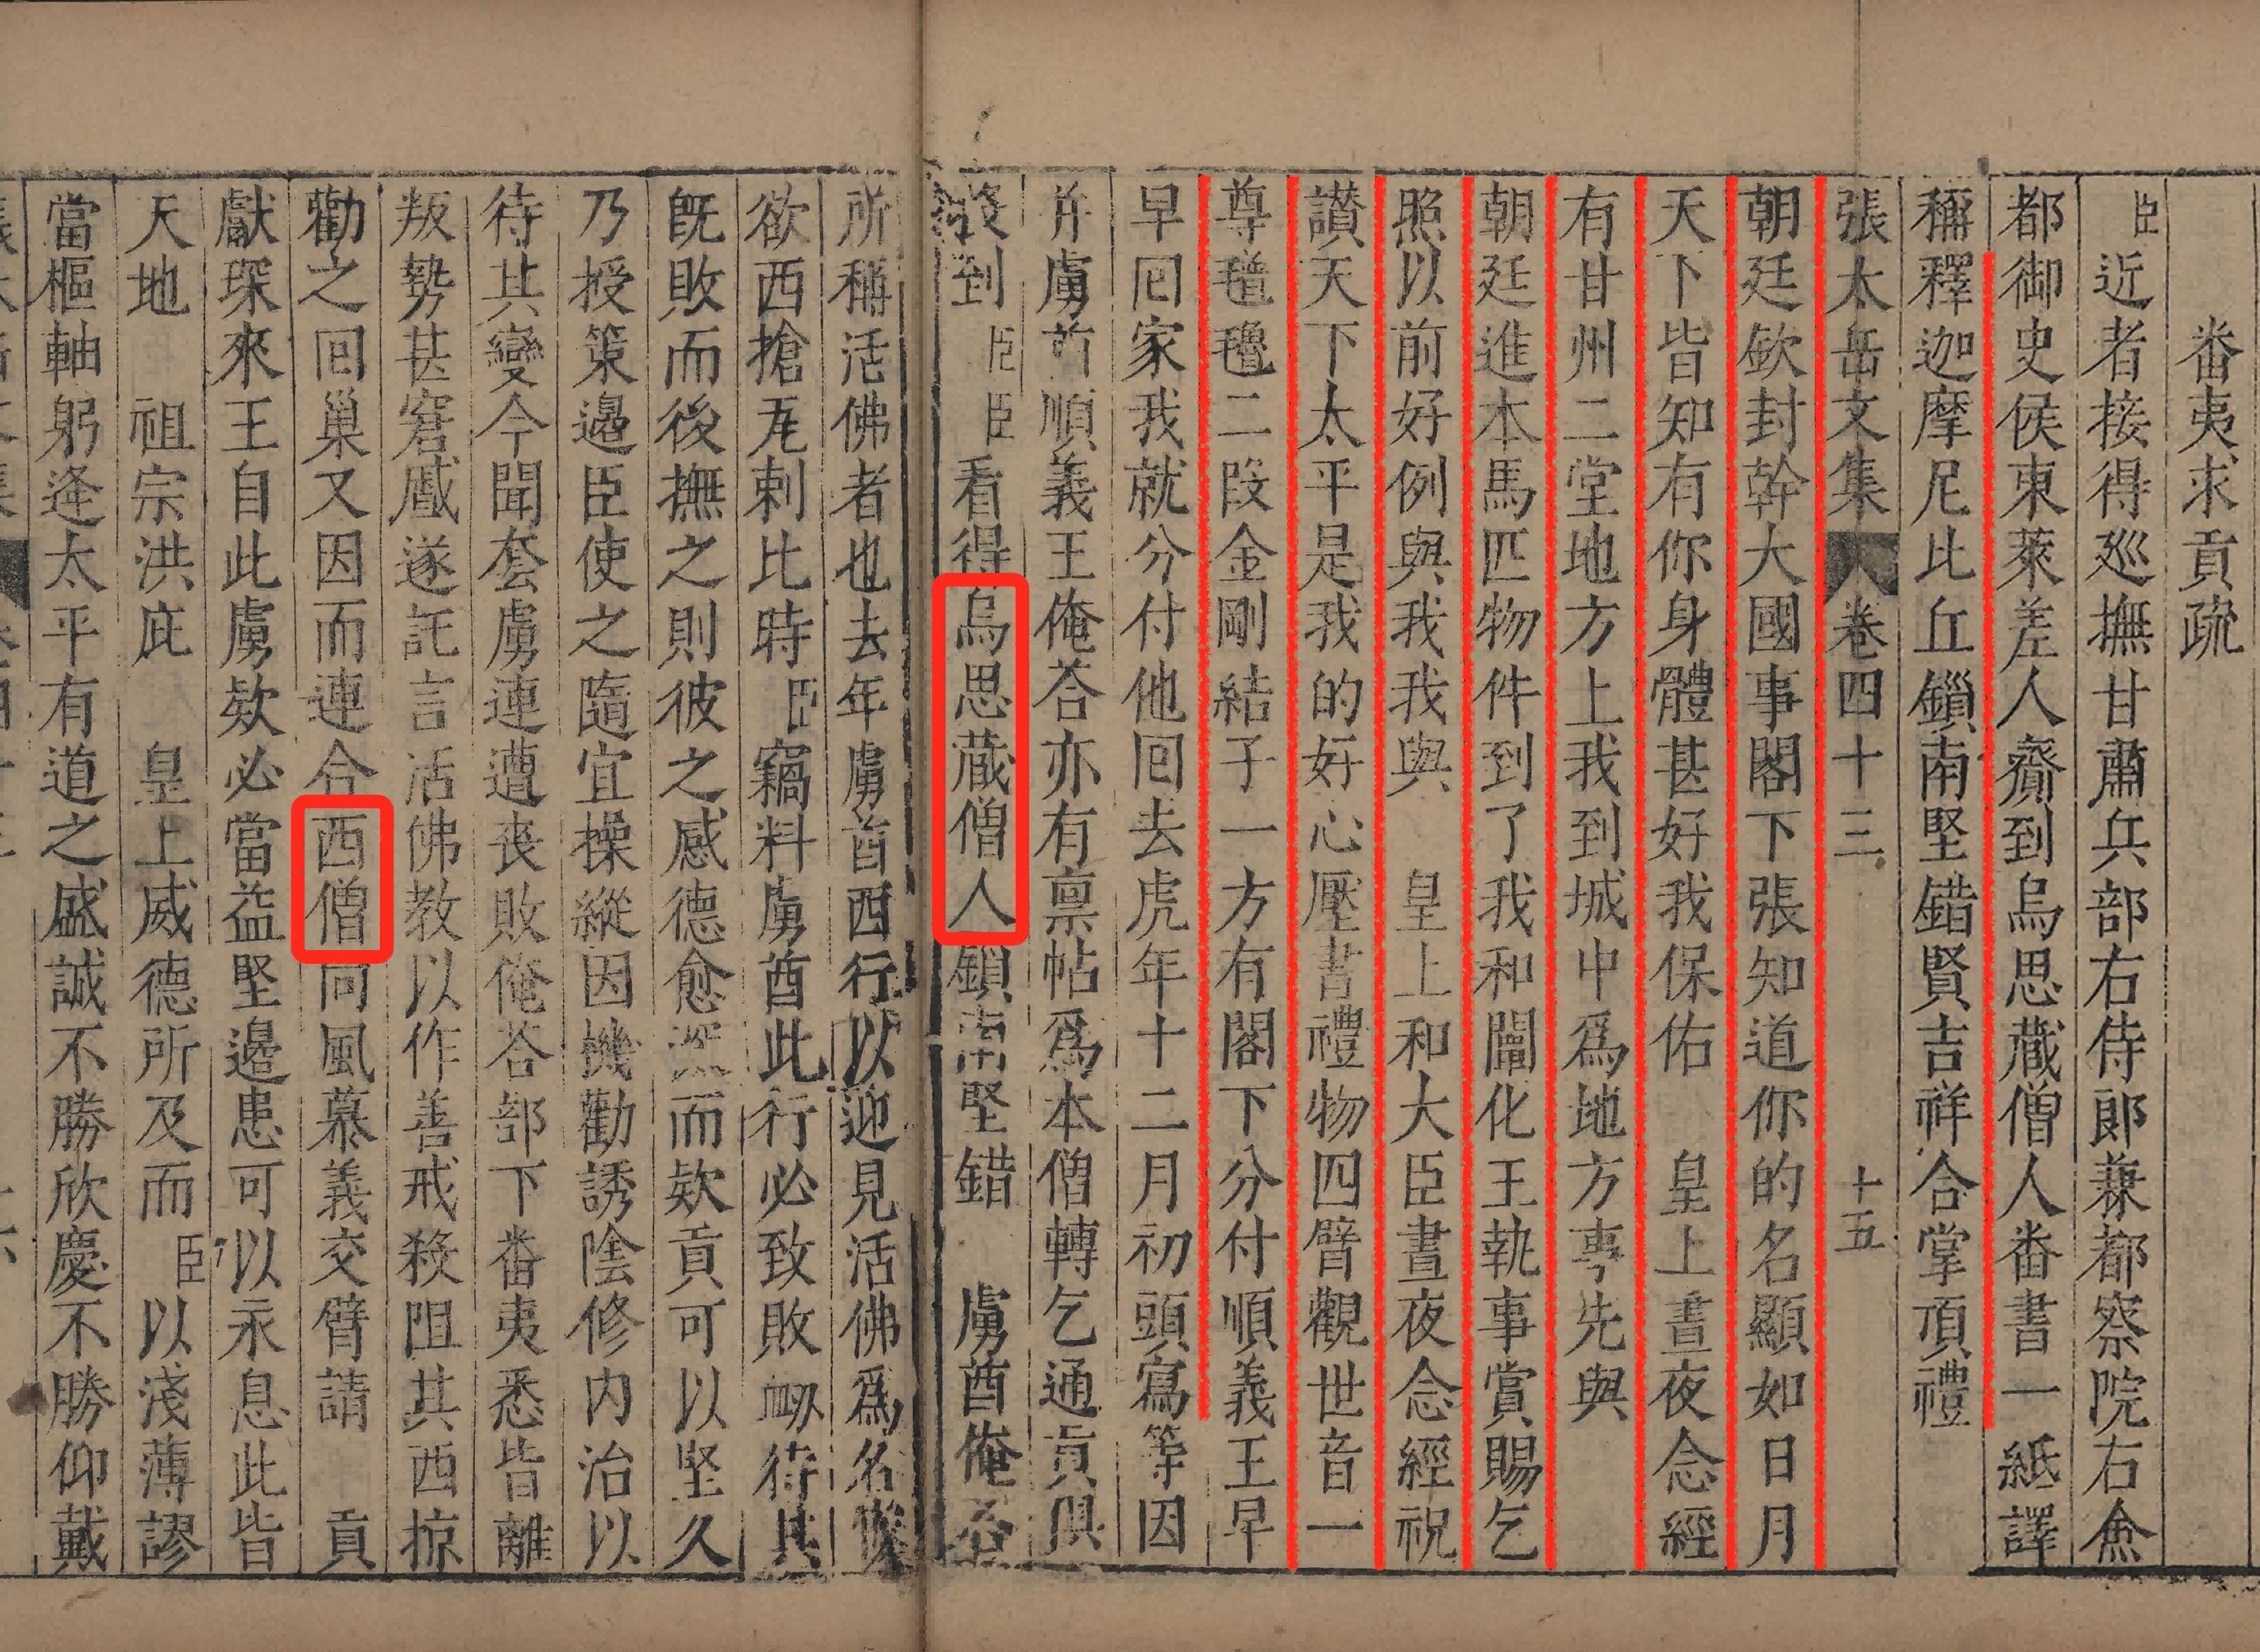 番夷求貢疏
臣近者接得巡撫甘肅兵部右侍郎兼都察院右僉
都御史侯東萊差人齎到烏思藏僧人番書一紙譯
稱釋迦摩尼比丘鎖南堅錯賢吉祥合掌頂禮
張太岳文集 卷四十三 十五
朝廷欽封幹大國事閣下張知道你的名顯如日月
天下皆知有你身體甚好我保佑 皇上晝夜念經
有甘州二堂地方上我到城中為地方事先與
朝廷進本馬匹物件到了我和闡化王執事賞賜乞
照以前好例與我我與 皇上和大臣晝夜念經祝
讚天下太平是我的好心壓書禮物四臂觀世音一
尊氆氌二段金剛結子一方有閣下分付順義王早
早回家我就分付他回去虎年十二月初頭寫等因
并虜酋順義王俺荅亦有禀帖為本僧轉乞通貢俱
到臣臣看得烏思藏僧人鎖南堅錯 虜酋俺荅
所稱活佛者也去年虜酋西行以迎見活佛為名
欲西搶瓦剌比時臣竊料虜酋此行必致敗衂待其
既敗而後撫之則彼之感德愈深而欵貢可以堅久
乃授策邊臣使之隨宜操縱因機勸誘陰修內治以
待其變今聞套虜連遭丧敗俺荅部下番夷悉皆離
叛勢甚窘蹙遂託言活佛教以作善戒殺阻其西掠
勸之回巢又因而連合西僧向風慕義交臂請 貢
獻琛來王自此虜欵必當益堅邊患可以永息此皆
天地 祖宗洪庇 皇上威德所及而臣以淺薄謬
當樞軸躬逢太平有道之盛誠不勝欣慶不勝仰戴